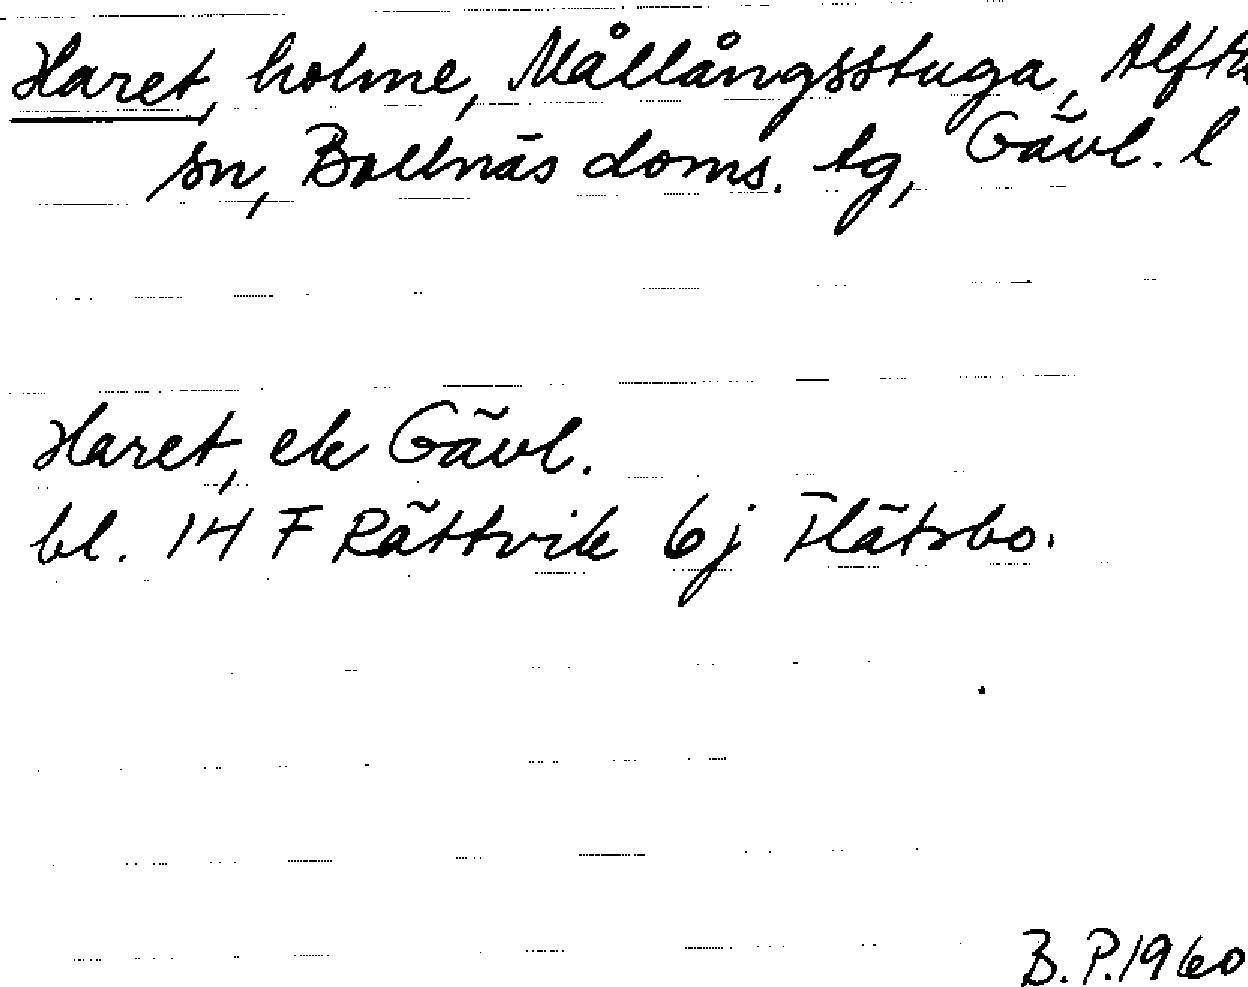 Haret, holme, Mållångsstuga, Alfta
sn, Bollnäs doms. tg, Gävl. l
Haret, ek Gävl.
bl. 14 F Rättvik 6j Flätsbo.
B.P. 1960